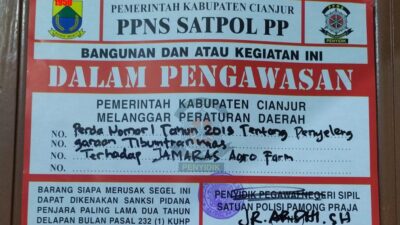 1950
PEMERINTAH KABUPATEN CIANJUR
PPNS SATPOL PP
BANGUNAN DAN ATAU KEGIATAN INI
DALAM PENGAWASAN
PEMERINTAH KABUPATEN CIANJUR
MELANGGAR PERATURAN DAERAH
NO. Perda Nomor 1 Tahun 2019 Tentang Penyeleng
NO. garaan Tibumtranmas
NO. Terhadap JAMARAS Agro Farm
BARANG SIAPA MERUSAK SEGEL INI
DAPAT DIKENAKAN SANKSI PIDANA
PENJARA PALING LAMA DUA TAHUN
DELAPAN BULAN PASAL 232 (1) KUHP
PENYIDIK PEGAWAI NEGERI SIPIL
SATUAN POLISI PAMONG PRAJA